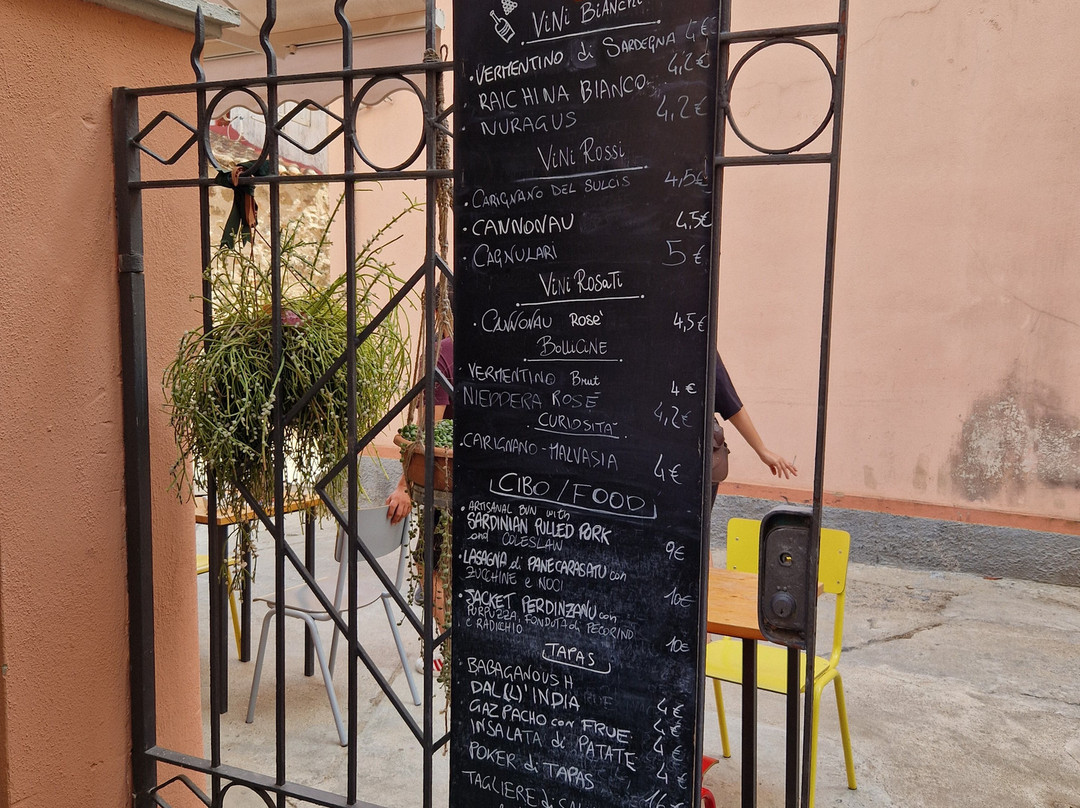 ViNi BiANCHi
· VERMENTINO di SARDEGNA 4€
· RAICHINA BIANCO 4,2€
· NURAGUS 4,2€
ViNi ROSSi
· CARIGNANO DEL SULCIS 4,5€
· CANNONAU 4,5€
· CAGNULARI 5€
ViNi ROSATi
· CANNONAU ROSE' 4,5€
BOLLICINE
· VERMENTINO Brut 4€
NIEDDERA ROSÉ 4,2€
CURIOSITA'
· CARIGNANO-MALVASIA 4€
CIBO/FOOD
· ARTISANAL BUN with
SARDINIAN PULLED PORK
and COLESLAW 9€
· LASAGNA di PANECARASATU con
ZUCCHINE e NOCI 10€
· JACKET PERDINZANU con
PURPUZZA, FONDUTA di PECORINO
e RADICCHIO 10€
TAPAS
· BABAGANOUSH 4€
DAL(L)'INDIA 4€
GAZPACHO con FRUE 4€
INSALATA di PATATE 4€
POKER di TAPAS 16€
TAGLIERE di